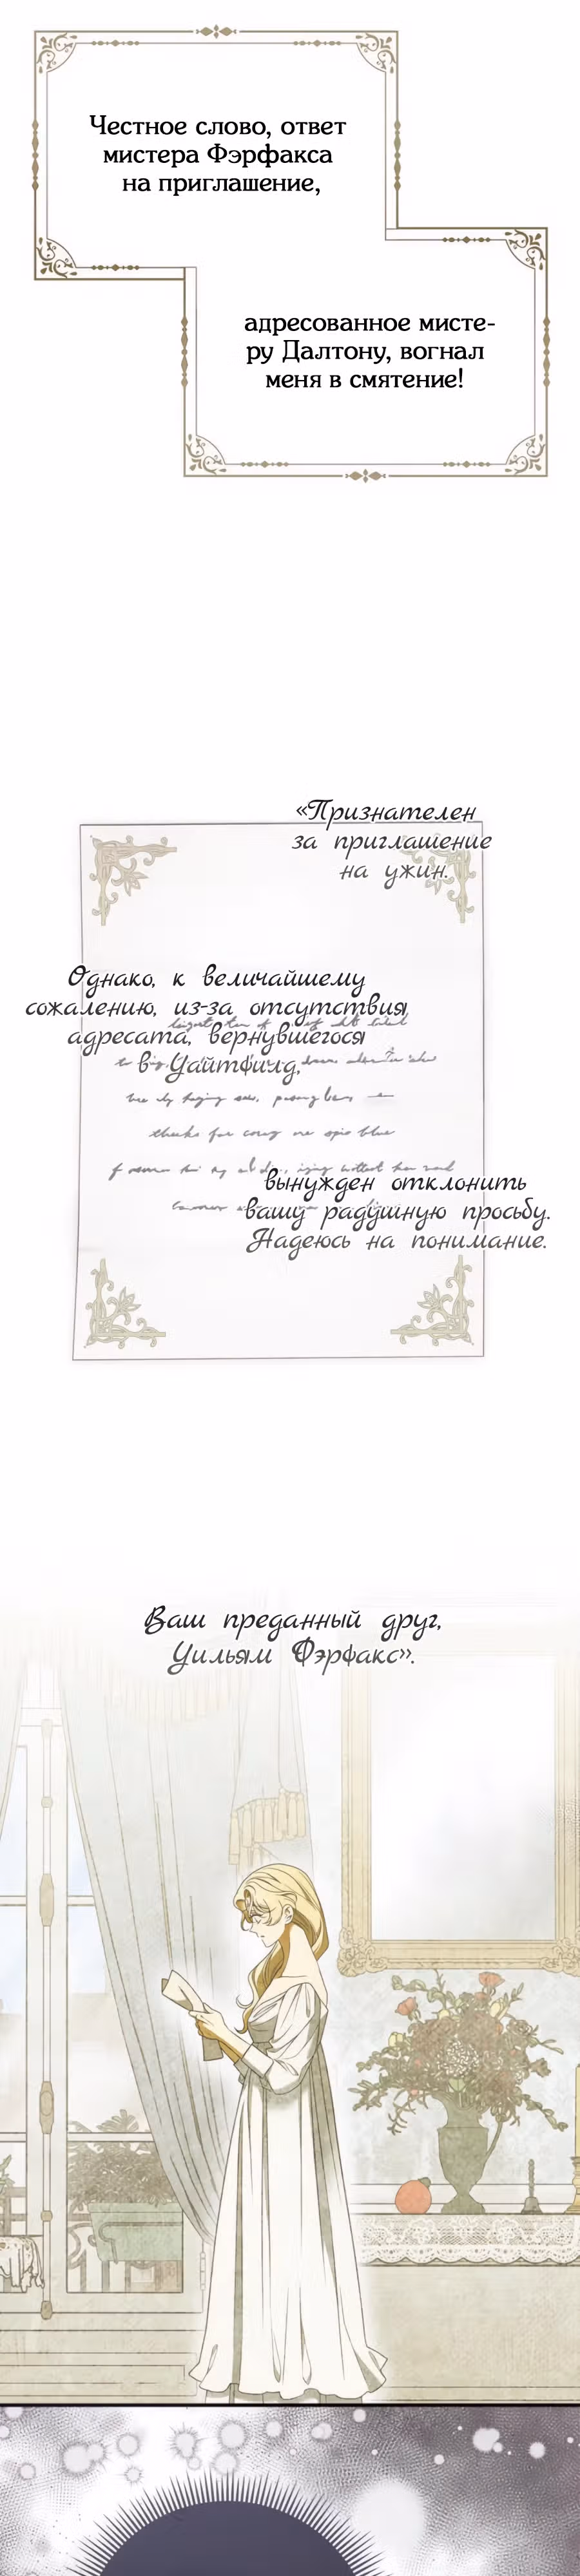 Честное слово, ответ
мистера Фэрфакса
на приглашение,
адресованное мисте-
ру Далтону, вогнал
меня в смятение!
«Признателен
за приглашение
на ужин.
Однако, к величайшему
сожалению, из-за отсутствия
адресата, вернувшегося
в Уайтфилд,
вынужден отклонить
вашу радушную просьбу.
Надеюсь на понимание.
Ваш преданный друг,
Уильям Фэрфакс».